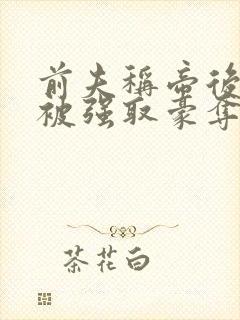 前夫稱帝後
被强取豪奪
茶花白